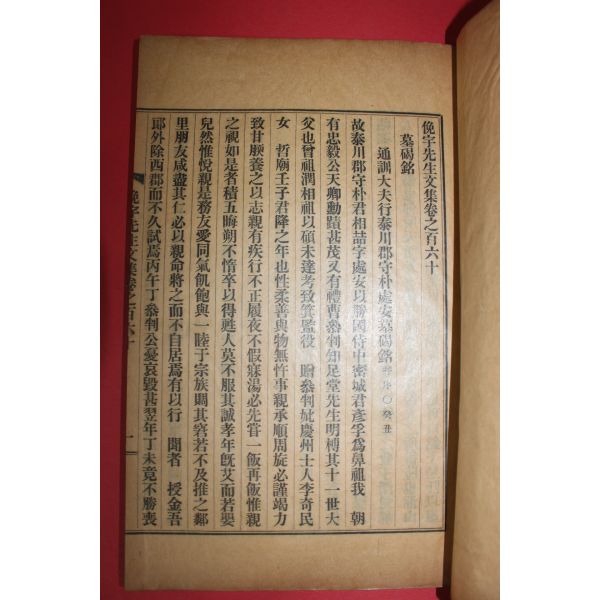 俛宇先生文集卷之百六十
墓碣銘
通訓大夫行泰川郡守朴處安墓碣銘 幷序○癸丑
故泰川郡守朴君相喆字處安以勝國侍中密城君彥孚爲鼻祖我 朝
有忠毅公天卿勳蹟甚茂又有禮曹叅判知足堂先生明榑其十一世大
父也曾祖潤相祖以碩未達考致箕監役 贈叅判妣慶州士人李奇民
女 哲廟壬子君降之年也性柔善與物無忤事親承順周旋必謹竭力
致甘腝養之以志親有疾行不正履夜不假寐湯必先甞一飯再飯惟親
之視如是者積五晦朔不惰卒以得甦人莫不服其誠孝年旣艾而若嬰
兒然惟悅親是務友愛同氣飢飽與一睦于宗族賙其窘若不及推之鄰
里朋友咸盡其仁必以親命將之而不自居焉有以行 聞者 授金吾
郞外除西郡而不久試焉丙午丁叅判公憂哀毀甚翌年丁未竟不勝喪
俛宇先生文集卷之百六十 一